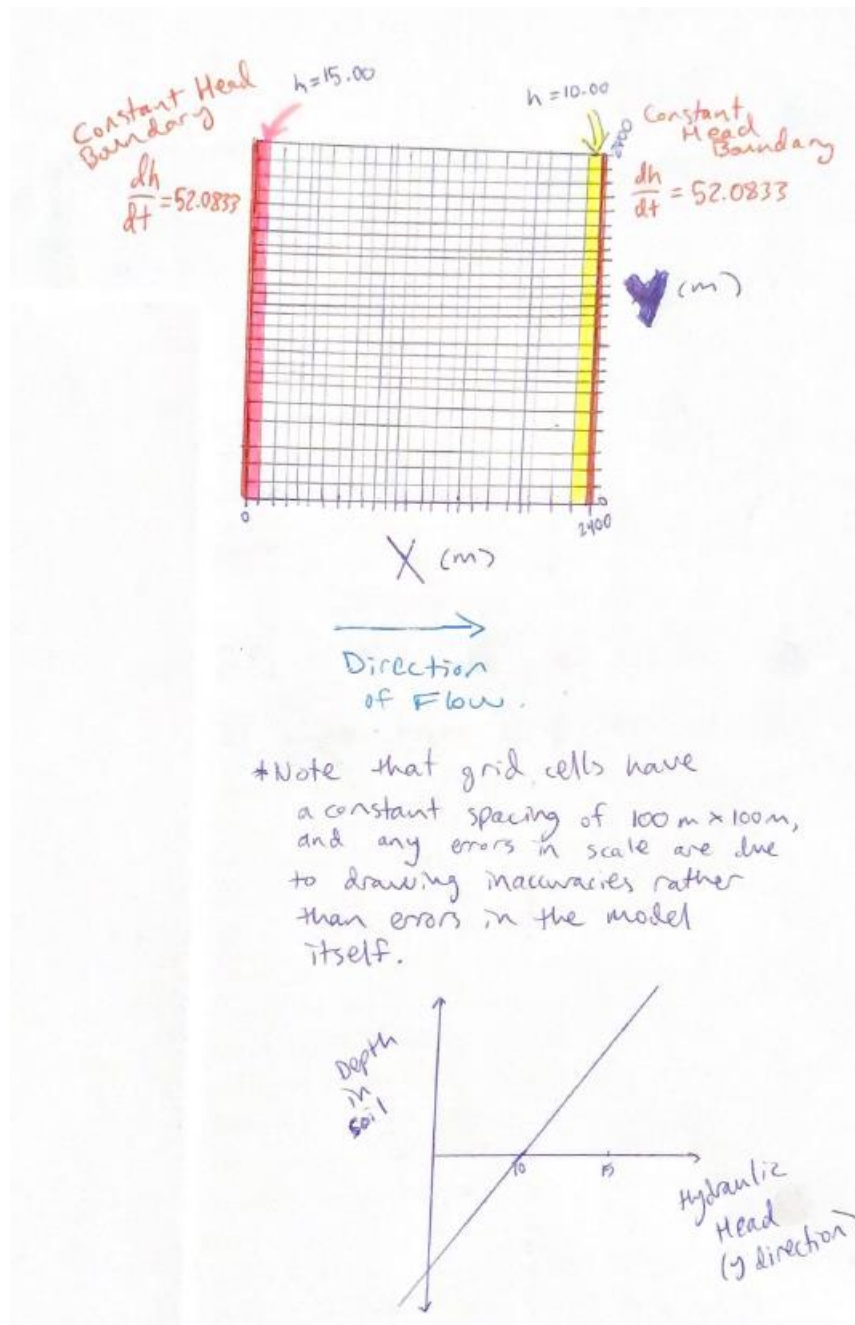 Constant Head
Boundary
dh/dt = 52.0833
h = 15.00
h = 10.00
Constant
Head
Boundary
dh/dt = 52.0833
2400
Y (m)
0
0
2400
X (m)
Direction
of Flow.
*Note that grid cells have
a constant spacing of 100 m × 100 m,
and any errors in scale are due
to drawing inaccuracies rather
than errors in the model
itself.
Depth
in
soil
10
15
Hydraulic
Head
(y direction)